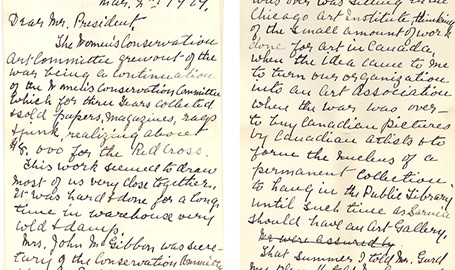 Dear Mr. President
The Women's Conservation
Art Committee grew out of the
war being a continuation
of the Women's Conservation Committee
which for three years collected
& sold papers, magazines, rags
& junk, realizing about
$8,000 for the Red Cross.
This work seemed to draw
most of us very close together.
It was hard & done for a long
time in warehouse very
cold & damp.
Mrs. John McGibbon was secre-
tary of the Conservation Committee
was over was sitting in the
Chicago Art Institute thinking
of the small amount of work
done for art in Canada,
when the idea came to me
to turn our organization
into an Art Association
when the war was over –
to buy Canadian pictures
by Canadian artists & to
form the nucleus of a
permanent collection.
to hang in the Public Library
until such time as Sarnia
should have an Art Gallery,
We were assured by
That summer I told Mr. Gurd